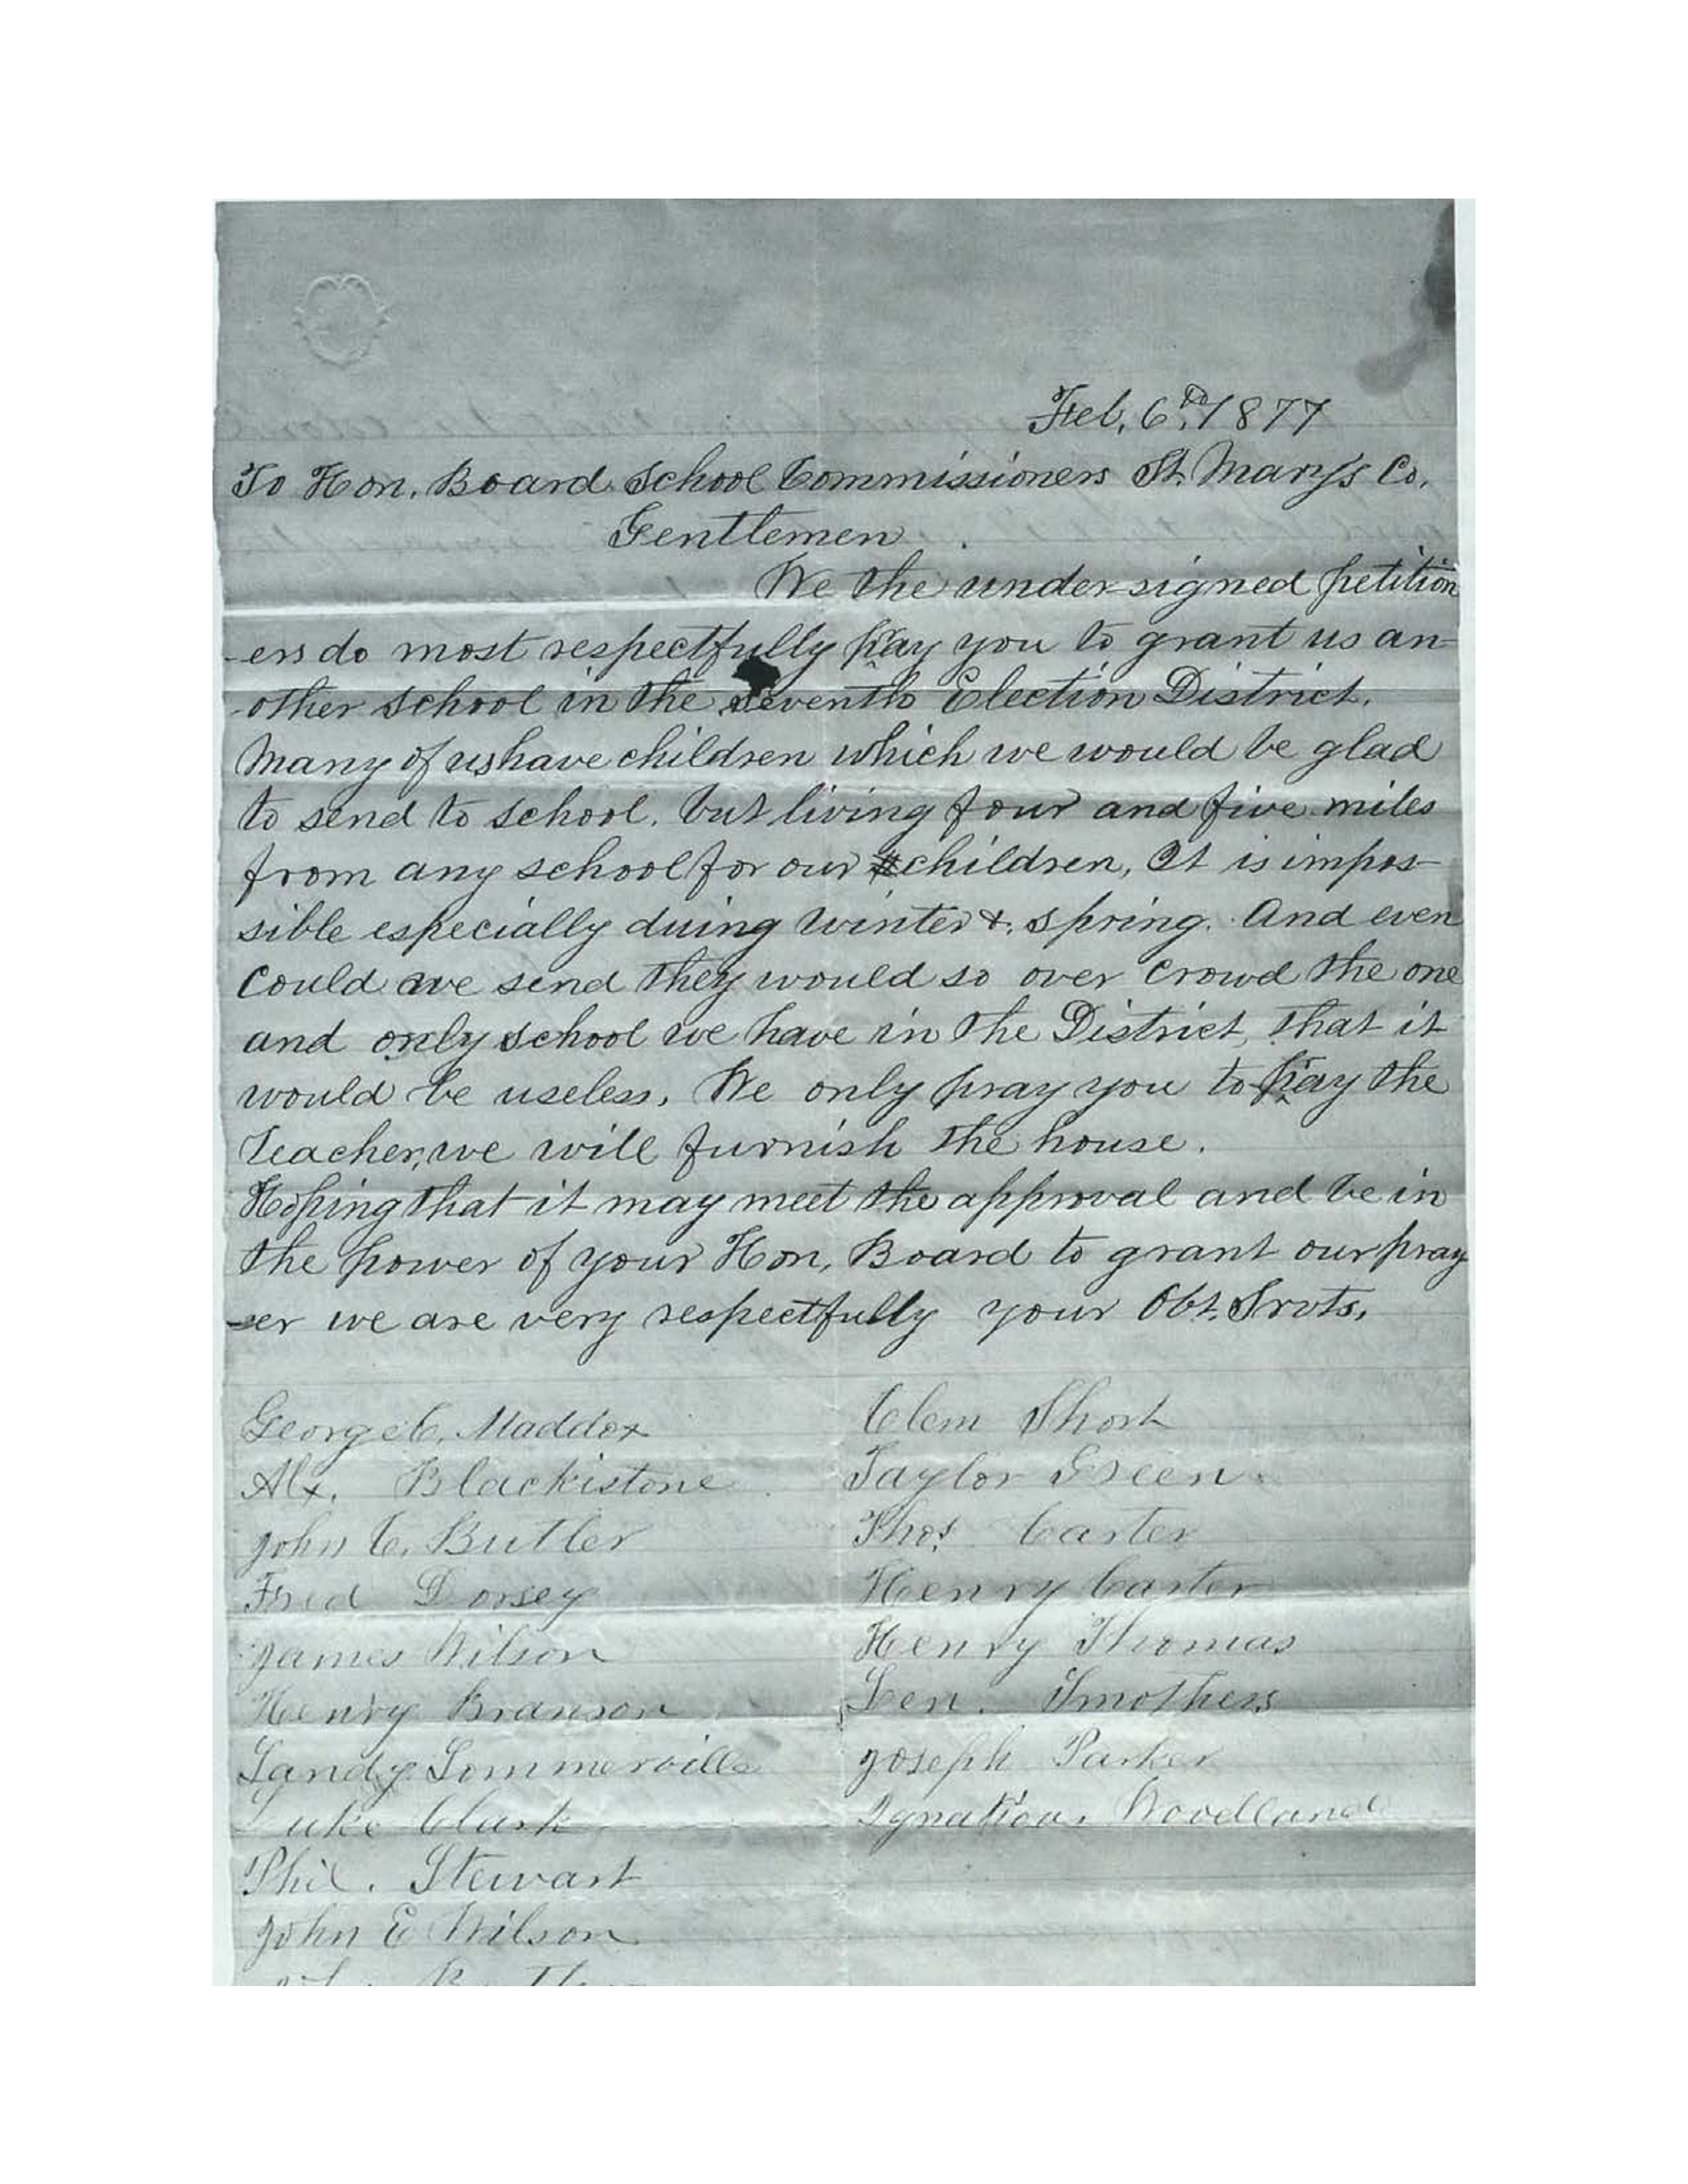 Feb. 6th 1877
To Hon. Board School Commissioners St. Mary's Co.
Gentlemen
We the under-signed petition
-ers do most respectfully pray you to grant us an-
-other school in the seventh Election District.
Many of us have children which we would be glad
to send to school. but living four and five miles
from any school for our children, It is impos-
sible especially duing winter &. spring. And even
Could we send they would so over crowd the one
and only school we have in the District, that it
would be useless. We only pray you to pay the
Teacher, we will furnish the house.
Hoping that it may meet the approval and be in
the power of your Hon. Board to grant our pray
-er we are very respectfully your Obt. Srvts.
George C. Maddox
Alx. Blackistone
John C. Butler
Fred Dorsey
James Wilson
Henry Branson
Sandy Sommerville
Luke Clark
Phil. Stewart
John E Wilson
Clem Short
Taylor Green
Thos. Carter
Henry Carter
Henry Thomas
Len. Smothers
Joseph Parker
Ignatious Woodland